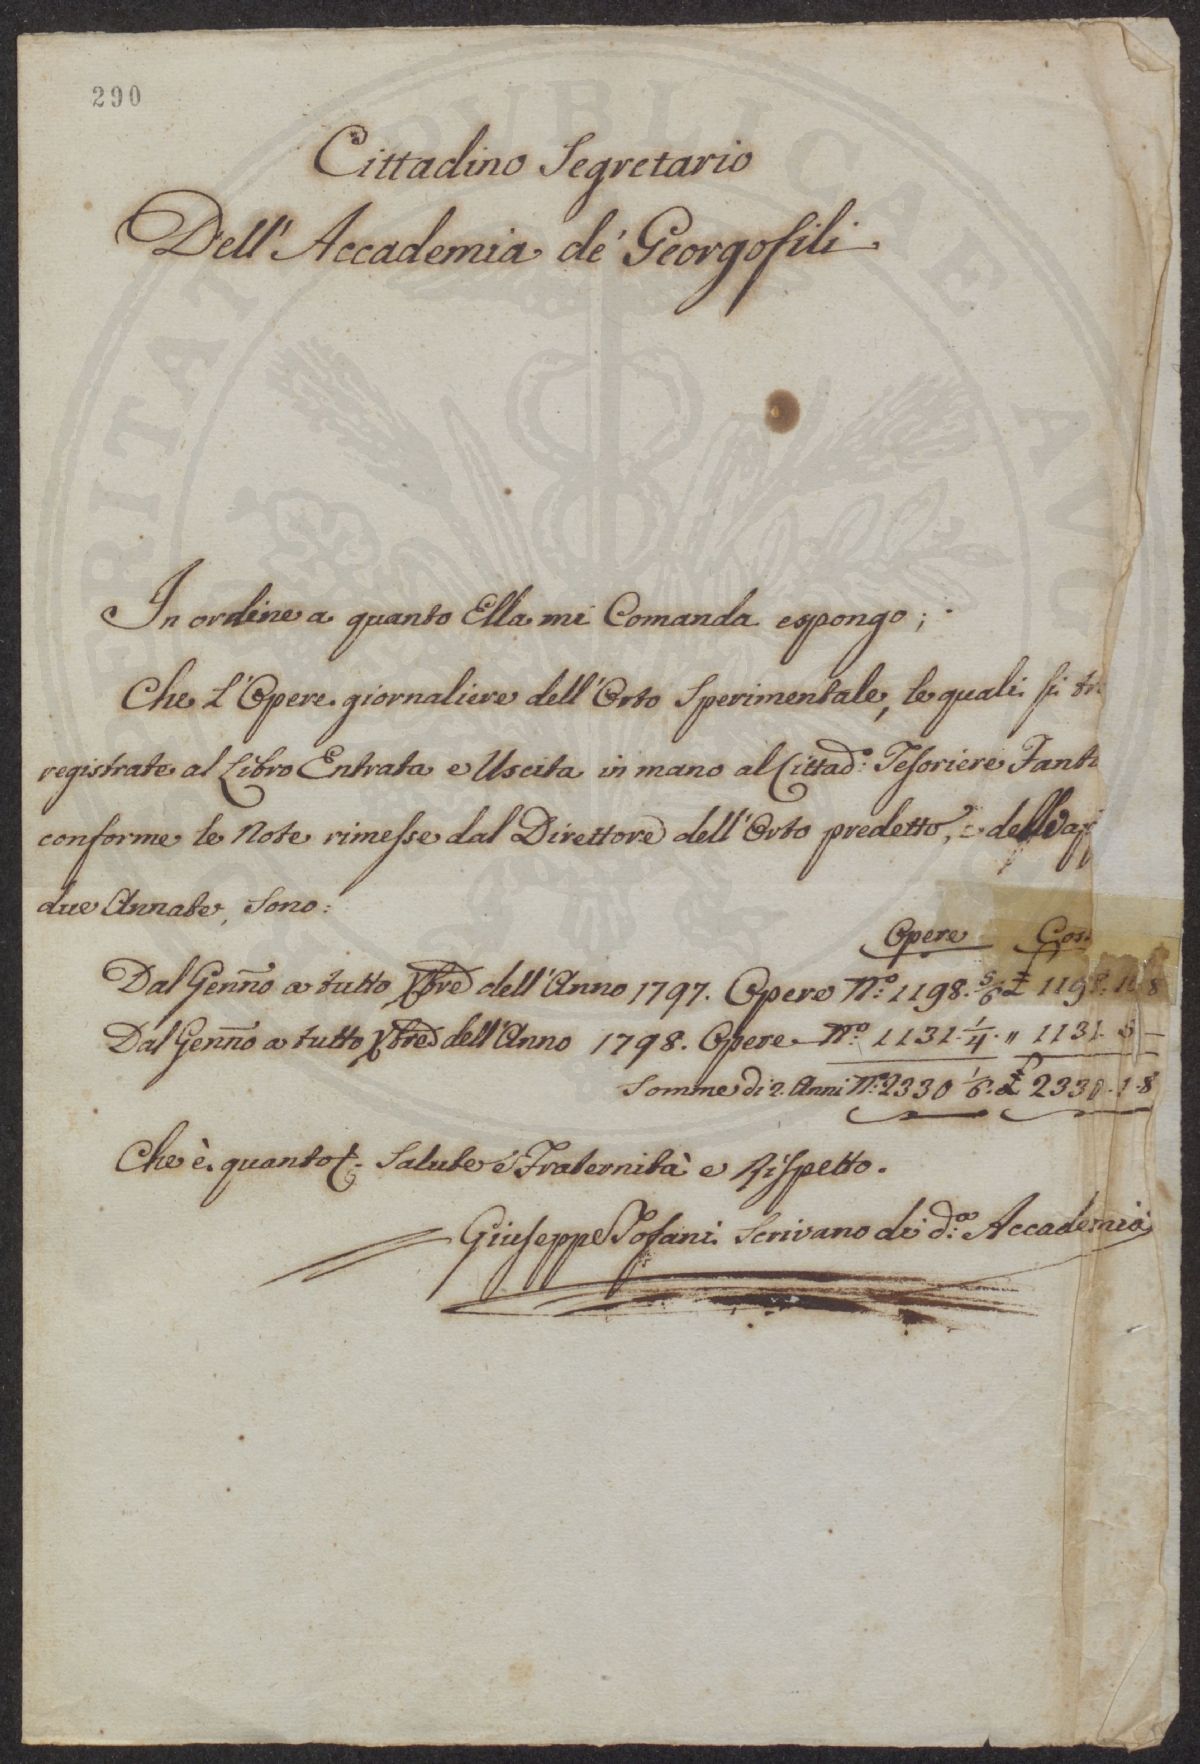 290
Cittadino Segretario
Dell' Accademia de' Georgofili
In ordine a quanto Ella mi Comanda espongo;
Che L'Opere giornaliere dell'Orto Sperimentale, le quali si
registrate al Libro Entrata e Uscita in mano al Cittad.º Tesoriere
conforme le Note rimesse dal Direttore dell'Orto predetto,
due Annate, sono:
Opere
Dal Genn̄o a tutto Xbre dell'Anno 1797. Opere Nº: 1198. 5/6 £ 1198. 16. 8
Dal Genn̄o a tutto Xbre dell'Anno 1798. Opere Nº 1131. 1/4. " 1131. 5 —
Somme di 2. Anni Nº: 2330 1/6. £ 2330. 1. 8
Che è quanto Salute e Fraternità e Rispetto.
Giuseppe Tofani Scrivano di d.ª Accademia
PUBLICAE